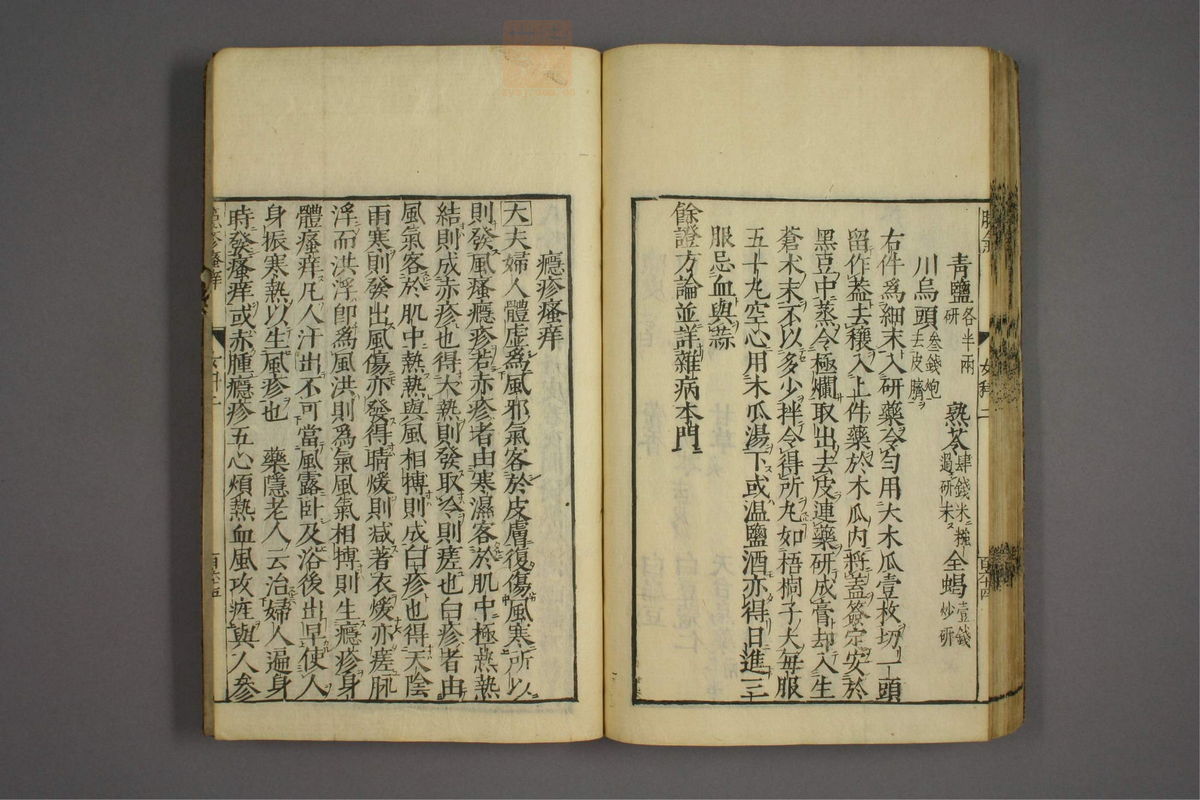 青鹽各半兩研
川烏頭叁錢炮去皮臍
熟艾肆錢米糨過研末
全蝎壹錢炒研
右件爲細末入研藥令勻用大木瓜壹枚切一頭
留作蓋去穰入上件藥於木瓜内將蓋簽定安於
黑豆中蒸令極爛取出去皮連藥研成膏却入生
蒼术末不以多少拌令得所丸如梧桐子大每服
五十丸空心用木瓜湯下或温鹽酒亦得日進三
服忌血與蒜
餘證方論並詳雜病本門
癮疹瘙痒
大夫婦人體虚爲風邪氣客於皮膚復傷風寒所以
則發風瘙癮疹若赤疹者由寒濕客於肌中極熱熱
結則成赤疹也得大熱則發取冷則瘥也白疹者由
風氣客於肌中熱熱與風相搏則成白疹也得天陰
雨寒則發出風傷亦發得晴煖則减著衣煖亦瘥脉
浮而洪浮即爲風洪則爲氣風氣相搏則生癮疹身
體瘙痒凡人汗出不可當風露卧及浴後出早使人
身振寒熱以生風疹也 藥隱老人云治婦人遍身
時發瘙痒或赤腫癮疹五心煩熱血風攻疰與人參
女科二